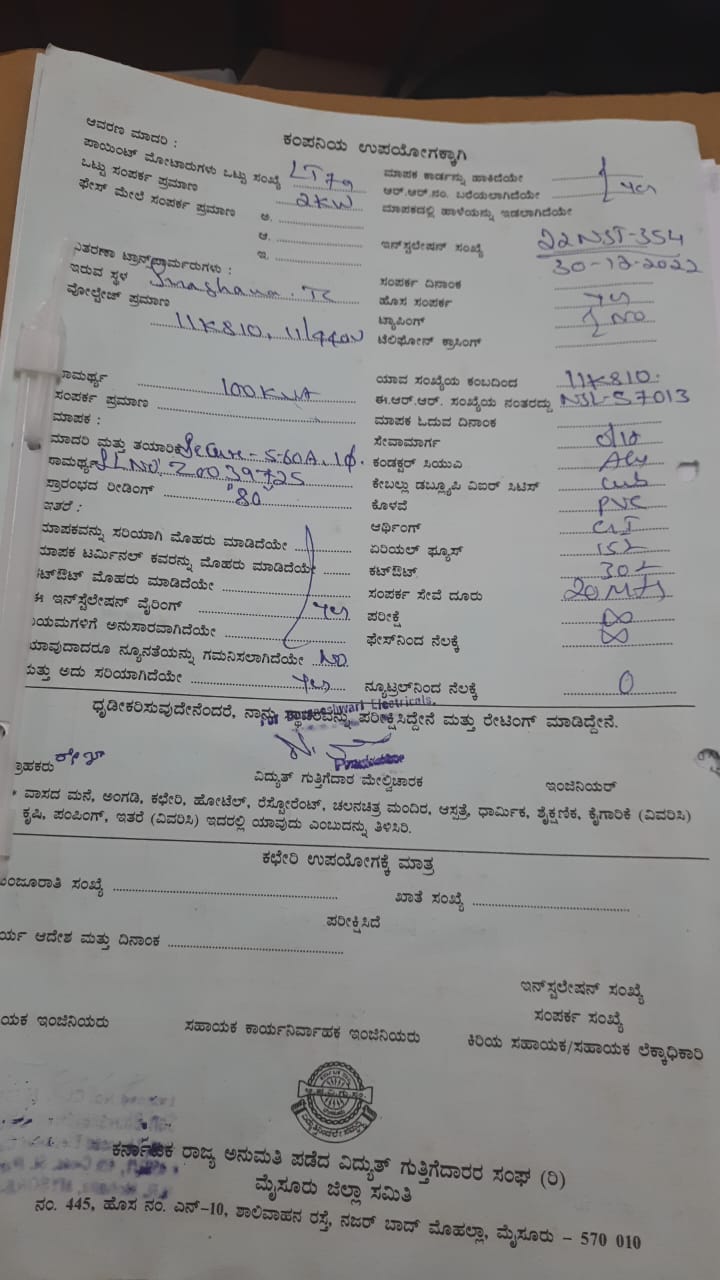 ಕಂಪನಿಯ ಉಪಯೋಗಕ್ಕಾಗಿ
ಆವರಣ ಮಾದರಿ :
ಪಾಯಿಂಟ್ ಮೋಟಾರುಗಳು ಒಟ್ಟು ಸಂಖ್ಯೆ LT7a ಮಾಪಕ ಕಾರ್ಡನ್ನು ಹಾಕಿದೆಯೇ
ಒಟ್ಟು ಸಂಪರ್ಕ ಪ್ರಮಾಣ 2KW ಆರ್.ಆರ್.ನಂ. ಬರೆಯಲಾಗಿದೆಯೇ yes
ಫೇಸ್ ಮೇಲೆ ಸಂಪರ್ಕ ಪ್ರಮಾಣ ಅ. ಮಾಪಕದಲ್ಲಿ ಹಾಳೆಯನ್ನು ಇಡಲಾಗಿದೆಯೇ
ಆ.
ಇ. ಇನ್‌ಸ್ಟಲೇಷನ್ ಸಂಖ್ಯೆ 22NST-354
30-12-2022
ವಿತರಣಾ ಟ್ರಾನ್ಸ್‌ಫಾರ್ಮರುಗಳು :
ಇರುವ ಸ್ಥಳ Smashana. TC ಸಂಪರ್ಕ ದಿನಾಂಕ
ವೋಲ್ಟೇಜ್ ಪ್ರಮಾಣ ಹೊಸ ಸಂಪರ್ಕ yes
11K810, 11/440V ಟ್ಯಾಪಿಂಗ್ NO
ಟೆಲಿಫೋನ್ ಕ್ರಾಸಿಂಗ್
ಸಾಮರ್ಥ್ಯ 100KVA ಯಾವ ಸಂಖ್ಯೆಯ ಕಂಬದಿಂದ 11K810.
ಸಂಪರ್ಕ ಪ್ರಮಾಣ ಈ.ಆರ್.ಆರ್. ಸಂಖ್ಯೆಯ ನಂತರದ್ದು NSL-57013
ಮಾಪಕ : ಮಾಪಕ ಓದುವ ದಿನಾಂಕ
ಮಾದರಿ ಮತ್ತು ತಯಾರಿಕೆ Secure-5-60A, 1φ. ಸೇವಾಮಾರ್ಗ o/H
ಸಾಮರ್ಥ್ಯ SL NO: 20039725 ಕಂಡಕ್ಟರ್ ಸಿಯುಎ
ಪ್ರಾರಂಭದ ರೀಡಿಂಗ್ "80" ಕೇಬಲ್ಲು ಡಬ್ಲ್ಯೂಪಿ ವಿಐರ್ ಸಿಟಿಸ್
ಇತರೆ : ಕೊಳವೆ PVC
ಮಾಪಕವನ್ನು ಸರಿಯಾಗಿ ಮೊಹರು ಮಾಡಿದೆಯೇ ಆರ್ಥಿಂಗ್ GI
ಮಾಪಕ ಟರ್ಮಿನಲ್ ಕವರನ್ನು ಮೊಹರು ಮಾಡಿದೆಯೇ ಏರಿಯಲ್ ಫ್ಯೂಸ್
ಕಟ್‌ಔಟ್ ಮೊಹರು ಮಾಡಿದೆಯೇ ಕಟ್‌ಔಟ್
ಈ ಇನ್‌ಸ್ಟಲೇಷನ್ ವೈರಿಂಗ್ yes ಸಂಪರ್ಕ ಸೇವೆ ದೂರು 20 Mts
ನಿಯಮಗಳಿಗೆ ಅನುಸಾರವಾಗಿದೆಯೇ ಪರೀಕ್ಷೆ ∞
ಯಾವುದಾದರೂ ನ್ಯೂನತೆಯನ್ನು ಗಮನಿಸಲಾಗಿದೆಯೇ NO ಫೇಸ್‌ನಿಂದ ನೆಲಕ್ಕೆ ∞
ಮತ್ತು ಅದು ಸರಿಯಾಗಿದೆಯೇ Yes ನ್ಯೂಟ್ರಲ್‌ನಿಂದ ನೆಲಕ್ಕೆ 0
ಧೃಡೀಕರಿಸುವುದೇನೆಂದರೆ, ನಾನು ಸ್ಥಾವರವನ್ನು ಪರೀಕ್ಷಿಸಿದ್ದೇನೆ ಮತ್ತು ರೇಟಿಂಗ್ ಮಾಡಿದ್ದೇನೆ.
Electricals.
ಗ್ರಾಹಕರು ವಿದ್ಯುತ್ ಗುತ್ತಿಗೆದಾರ ಮೇಲ್ವಿಚಾರಕ ಇಂಜಿನಿಯರ್
* ವಾಸದ ಮನೆ, ಅಂಗಡಿ, ಕಛೇರಿ, ಹೋಟೆಲ್, ರೆಸ್ಟೋರೆಂಟ್, ಚಲನಚಿತ್ರ ಮಂದಿರ, ಆಸ್ಪತ್ರೆ, ಧಾರ್ಮಿಕ, ಶೈಕ್ಷಣಿಕ, ಕೈಗಾರಿಕೆ (ವಿವರಿಸಿ)
ಕೃಷಿ, ಪಂಪಿಂಗ್, ಇತರೆ (ವಿವರಿಸಿ) ಇದರಲ್ಲಿ ಯಾವುದು ಎಂಬುದನ್ನು ತಿಳಿಸಿರಿ.
ಕಛೇರಿ ಉಪಯೋಗಕ್ಕೆ ಮಾತ್ರ
ಮಂಜೂರಾತಿ ಸಂಖ್ಯೆ ಖಾತೆ ಸಂಖ್ಯೆ
ಪರೀಕ್ಷಿಸಿದೆ
ಕಾರ್ಯ ಆದೇಶ ಮತ್ತು ದಿನಾಂಕ
ಇನ್‌ಸ್ಟಲೇಷನ್ ಸಂಖ್ಯೆ
ಸಂಪರ್ಕ ಸಂಖ್ಯೆ
ಸಹಾಯಕ ಇಂಜಿನಿಯರು ಸಹಾಯಕ ಕಾರ್ಯನಿರ್ವಾಹಕ ಇಂಜಿನಿಯರು ಕಿರಿಯ ಸಹಾಯಕ/ಸಹಾಯಕ ಲೆಕ್ಕಾಧಿಕಾರಿ
ಕರ್ನಾಟಕ ರಾಜ್ಯ ಅನುಮತಿ ಪಡೆದ ವಿದ್ಯುತ್ ಗುತ್ತಿಗೆದಾರರ ಸಂಘ (ರಿ)
ಮೈಸೂರು ಜಿಲ್ಲಾ ಸಮಿತಿ
ನಂ. 445, ಹೊಸ ನಂ. ಎನ್-10, ಶಾಲಿವಾಹನ ರಸ್ತೆ, ನಜರ್ ಬಾದ್ ಮೊಹಲ್ಲಾ, ಮೈಸೂರು - 570 010